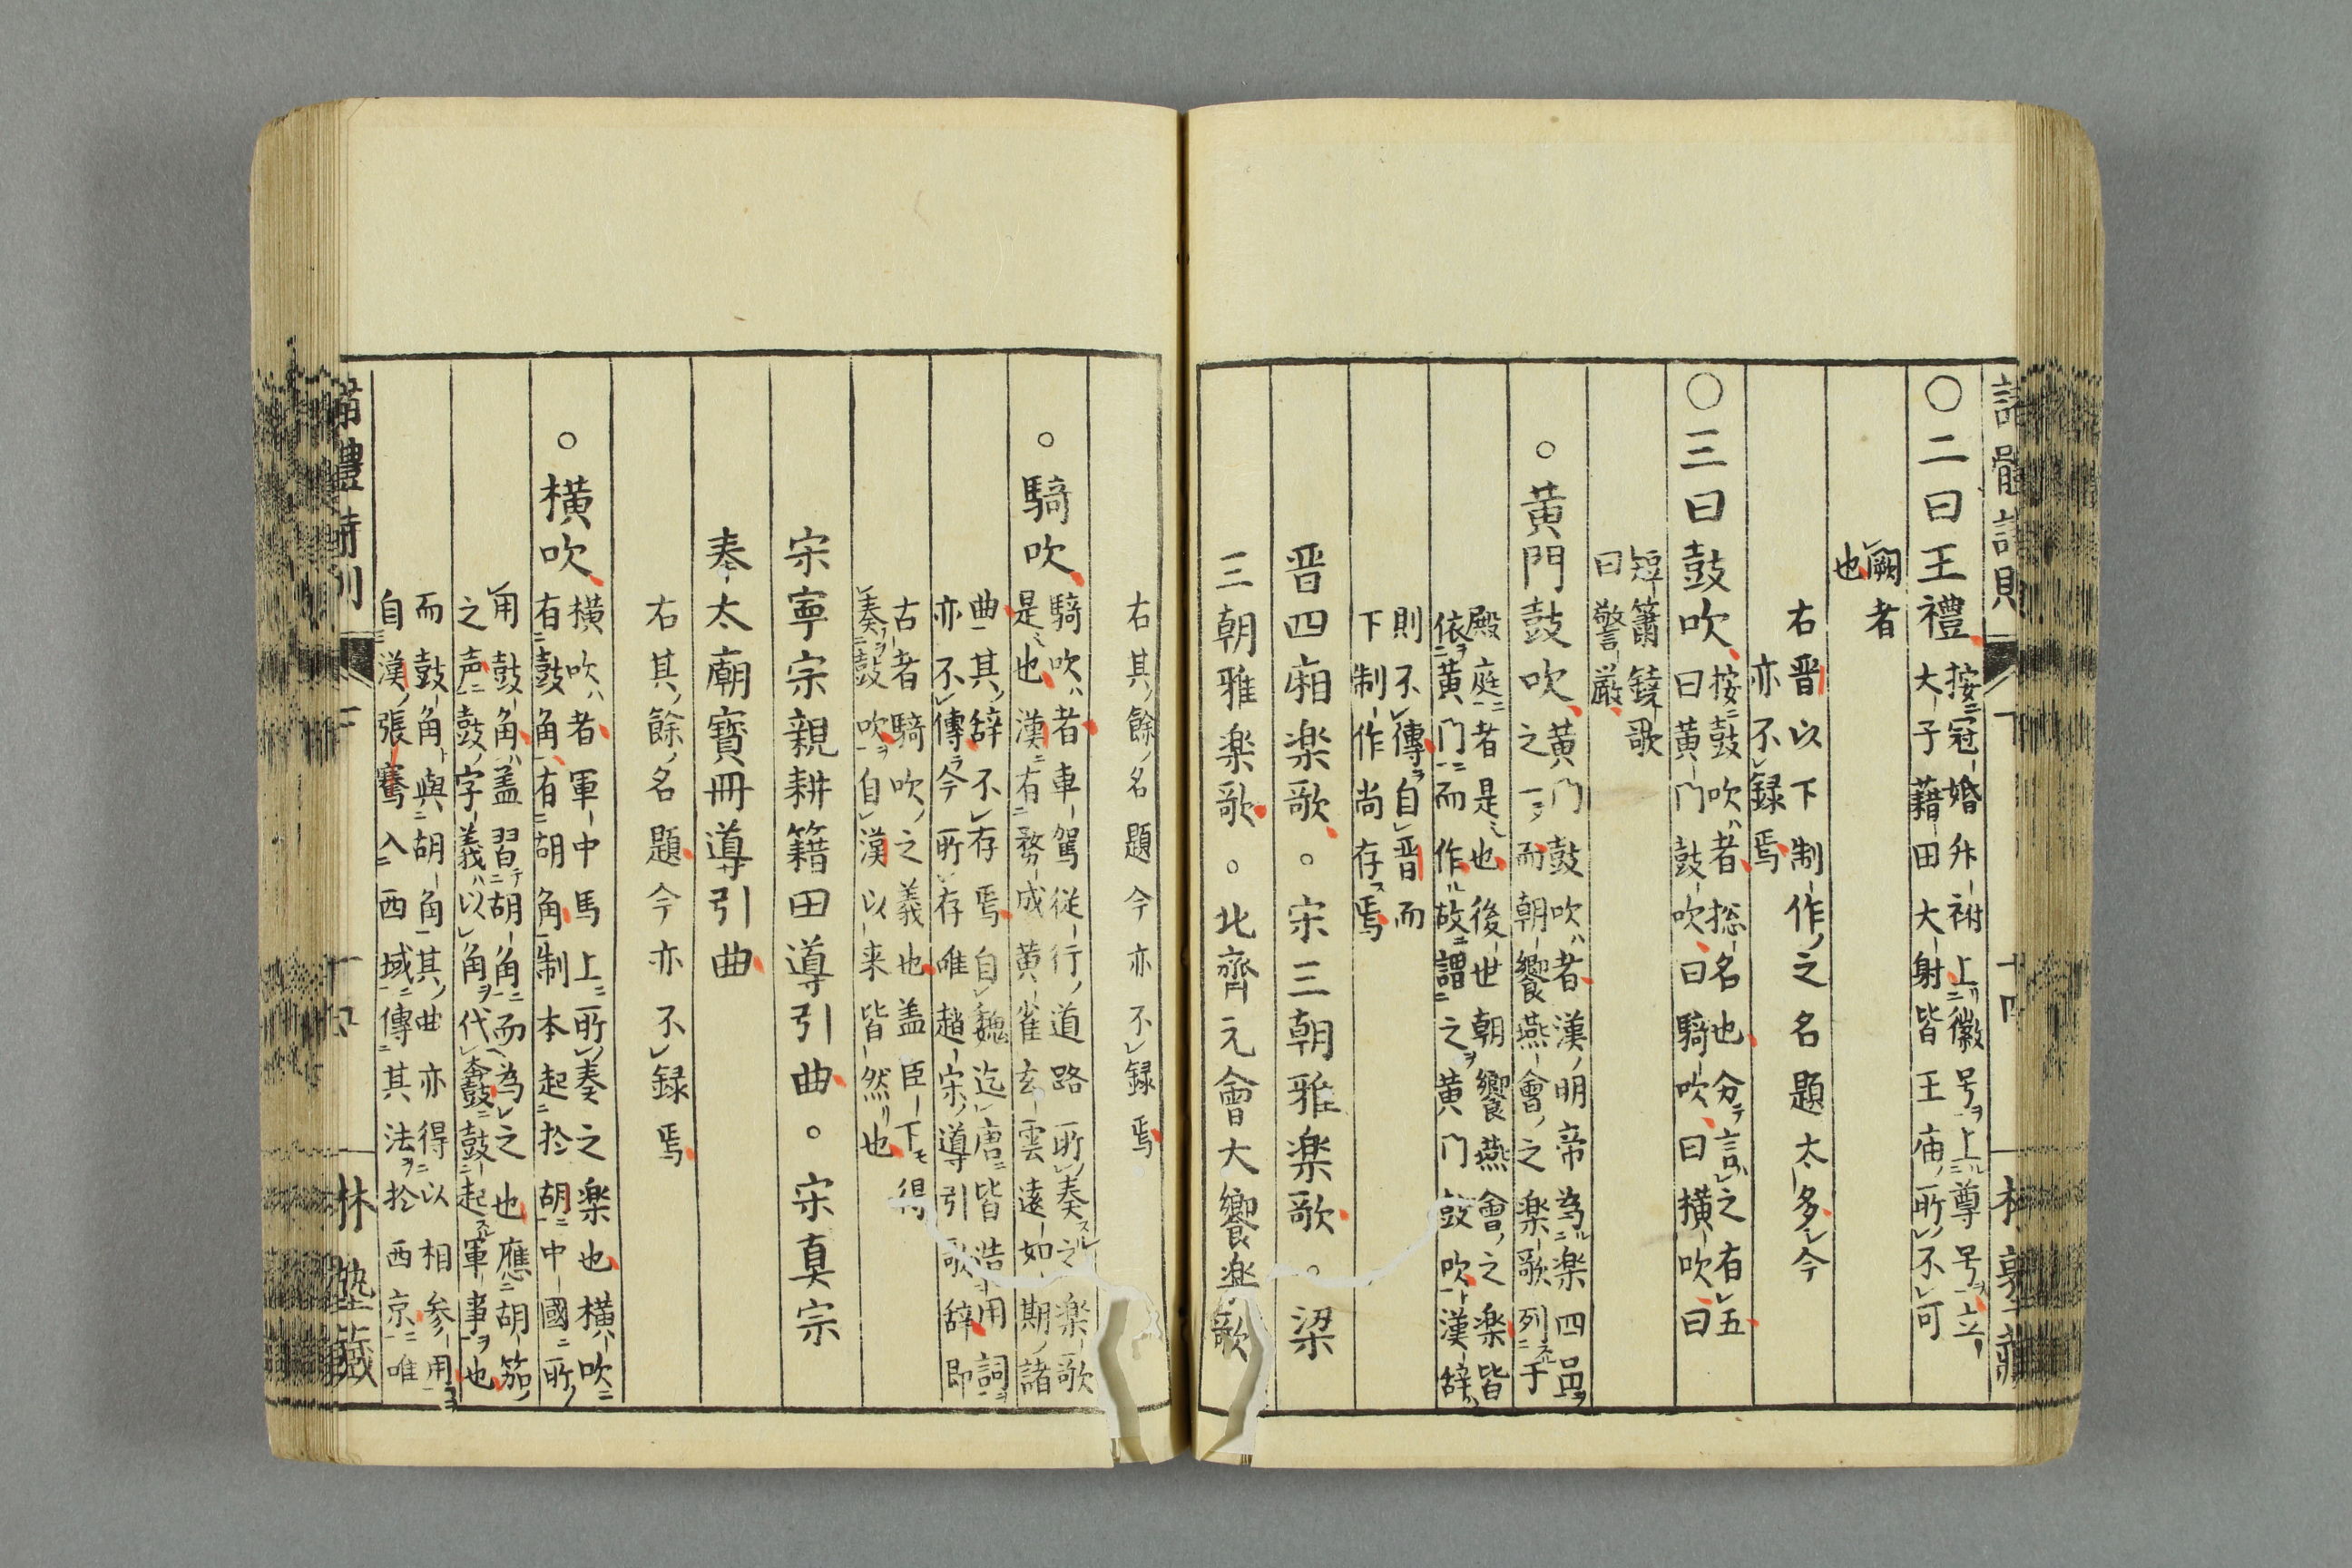 〇二曰王禮
按冠婚升祔上徽号上尊号立
大子藉田大射皆王庙所不可
闕者
也
右晋以下制作之名題太多今
亦不録焉
〇三曰鼓吹
按鼓吹者捴名也分言之有五
曰黄門鼓吹曰騎吹曰横吹曰
短簫鐃歌
曰警厳
○黄門鼓吹
黄门鼓吹者漢明帝為楽四品
之一而朝饗燕會之楽歌列于
殿庭者是也後世朝饗燕會之楽皆
依黄门而作故謂之黄门鼓吹漢辞
則不傳自晋而
下制作尚存焉
晋四廂楽歌○宋三朝雅楽歌○梁
三朝雅楽歌○北齊元會大饗楽歌
右其餘名題今亦不録焉
○騎吹
騎吹者車駕従行道路所奏之楽歌
是也漢有務成黄雀玄雲遠如期諸
曲其辞不存焉自魏迄唐皆造用詞
亦不傳今所存唯趙宋導引歌辞即
古者騎吹之義也盖臣下得
奏鼓吹自漢以来皆然也
宋寧宗親耕籍田導引曲○宋真宗
奉太廟寳冊導引曲
右其餘名題今亦不録焉
○横吹
横吹者軍中馬上所奏之楽也横吹
有鼓角有胡角制本起扵胡中國所
用鼓角盖習胡角而為之也應胡笳
之声鼓字義以角代鼖鼓鼓起軍事也
而鼓角與胡角其曲亦得以相参用
自漢張騫入西域傳其法扵西京唯